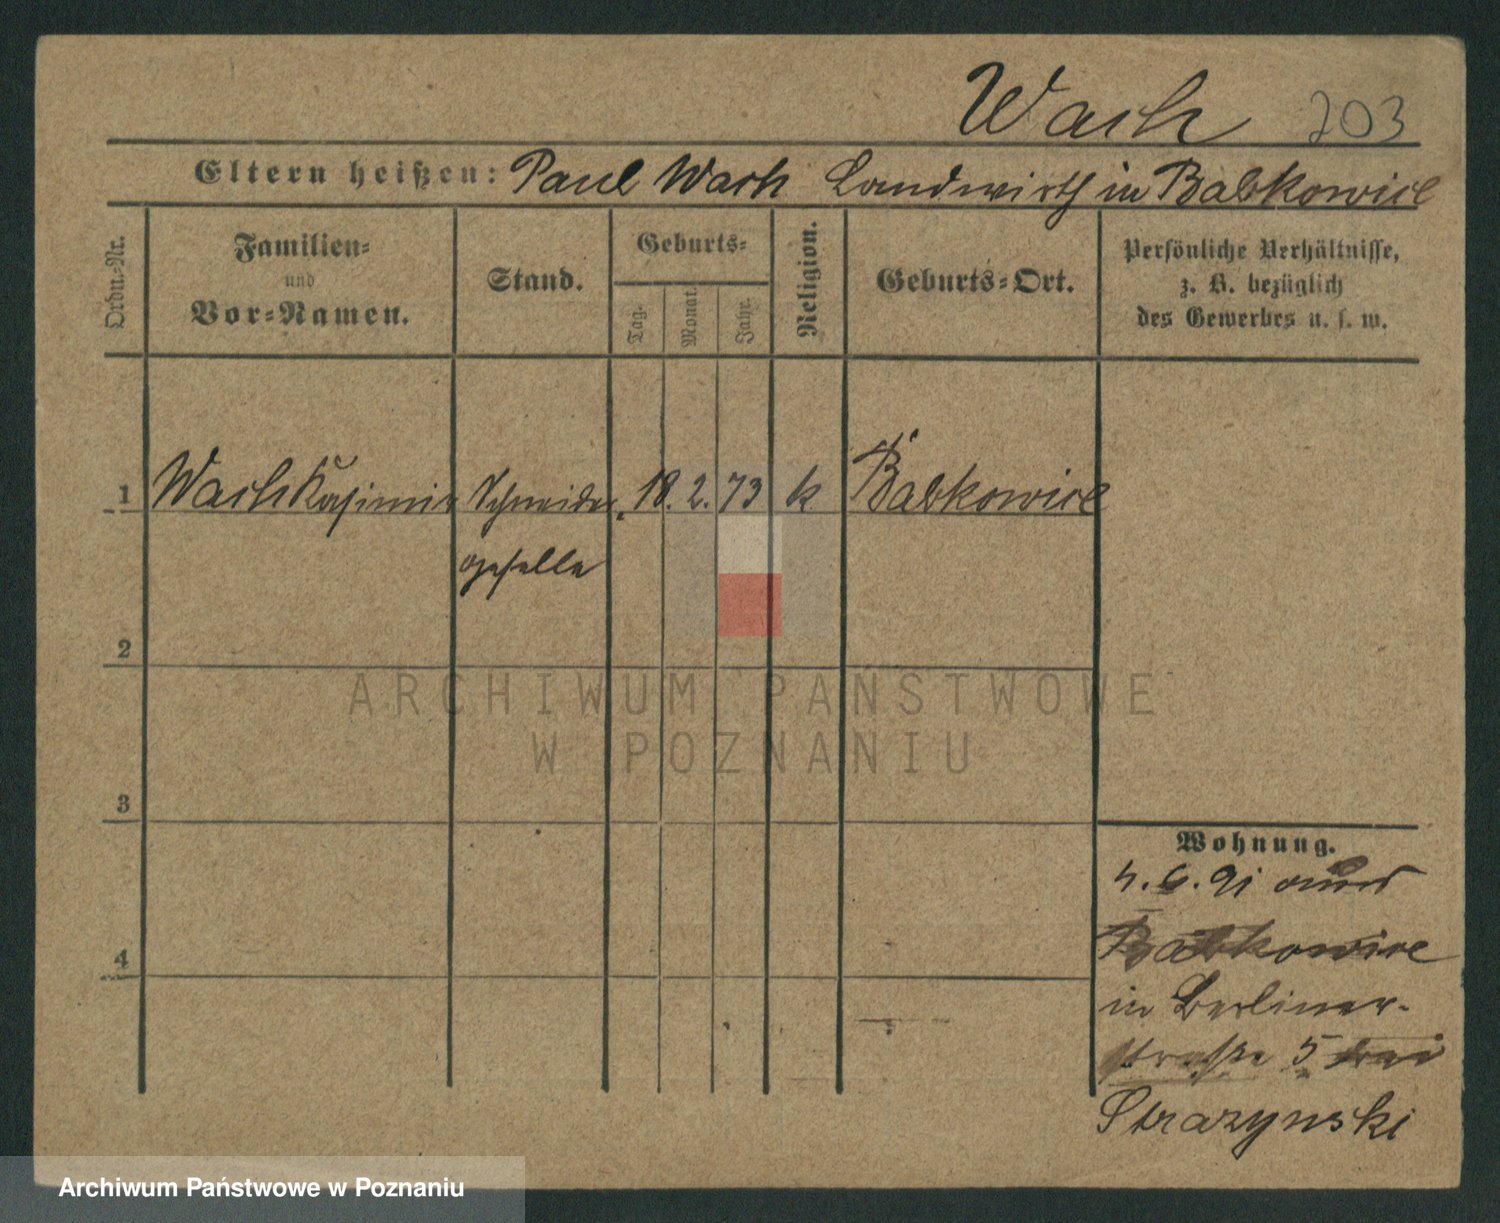 Wach 203
Eltern heißen: Paul Wach Landwirth in Babkowice
Ordn.-Nr.
Familien-
und
Vor-Namen.
Stand.
Geburts-
Tag.
Monat.
Jahr.
Religion.
Geburts-Ort.
Persönliche Verhältnisse,
z. B. bezüglich
des Gewerbes u. s. w.
1 Wach Kasimir Schneider 18. 2. 73 k Babkowice
geselle
2
3
4
ARCHIWUM PAŃSTWOWE
W POZNANIU
Wohnung.
4. 6. 91 aus
Babkowice
in Berliner-
straße 5 bei
Strazynski
Archiwum Państwowe w Poznaniu